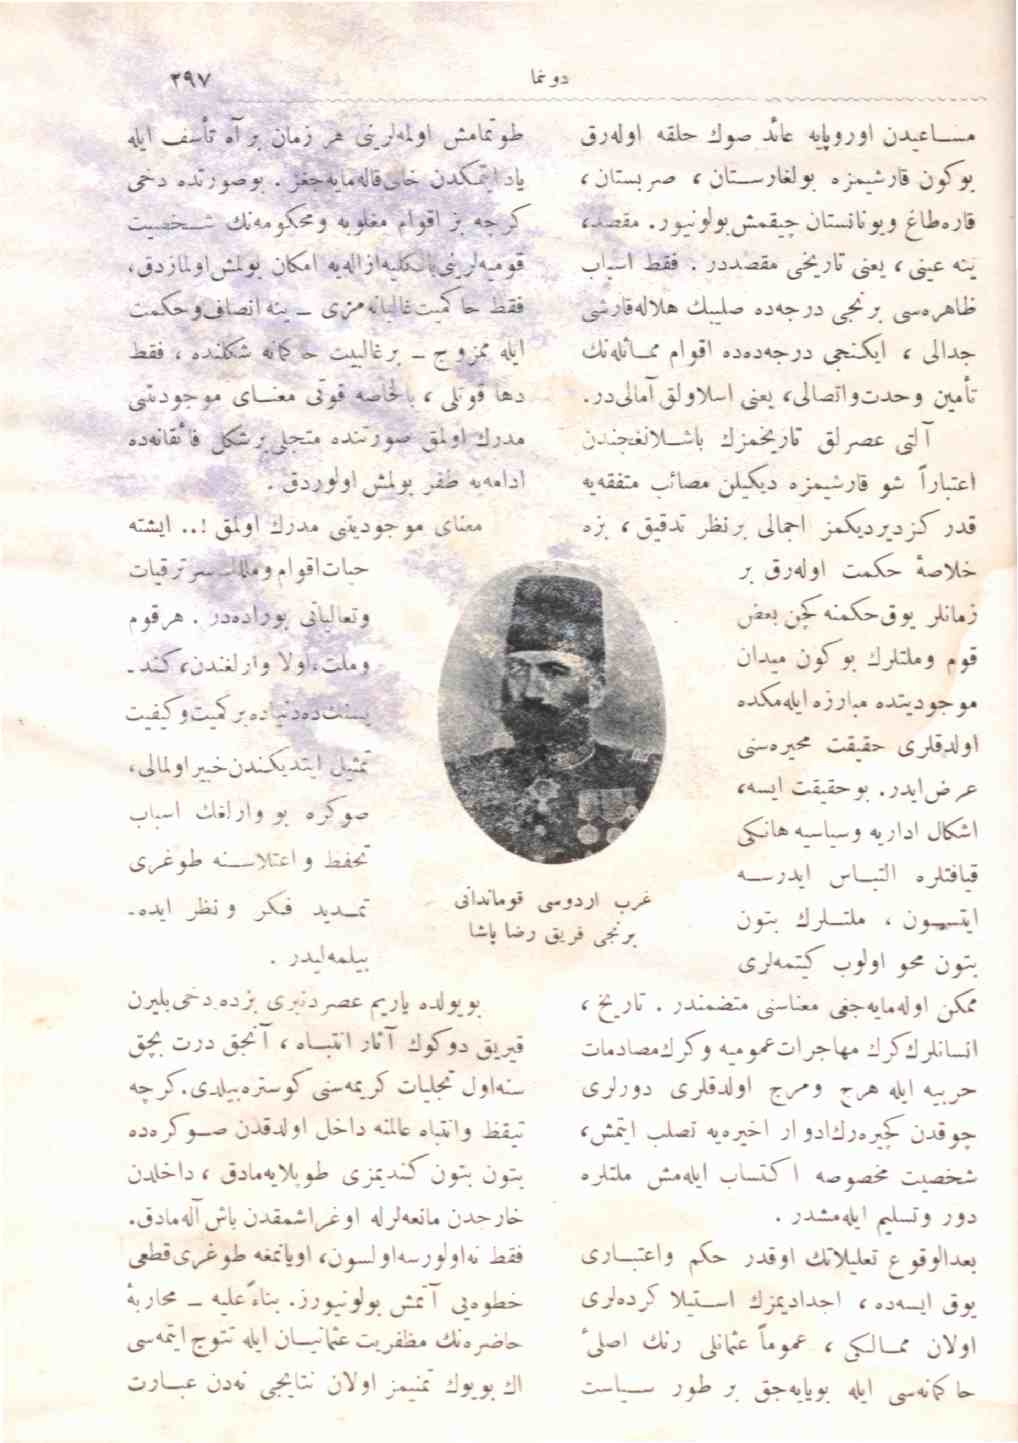 دوننما
٣٩٧
مساعیدن اوروپایه عائد صوك حلقه اوله‌رق
بوكون قارشیمزه بولغارستان ، صربستان ،
قاره‌طاغ ویونانستان چیقمش بولونیور. مقصد،
ینه عینی ، یعنی تاریخی مقصددر . فقط اسباب
ظاهره‌سی برنجی درجه‌ده صلیبك هلاله قارشی
جدالی ، ایكنجی درجه‌ده‌ده اقوام مماثله‌نك
تأمین وحدت واتصالی ، یعنی اسلاولق آمالی‌در.
آلتی عصرلق تاریخمزك باشلانغجندن
اعتباراً شو قارشیمزه دیكیلن مصائب متفقه‌یه
قدر كزدیردیكمز اجمالی برنظر تدقیق ، بزه
خلاصهٔ حكمت اوله‌رق بر
زمانلر یوق حكمنه كچن بعض
قوم وملتلرك بوكون میدان
موجودیتده مبارزه ایله‌مكده
اولدقلری حقیقت محیره‌سنی
عرض ایدر. بوحقیقت ایسه،
اشكال اداریه وسیاسیه هانكی
قیافتلره التباس ایدرسه
ایتسون ، ملتلرك بتون
بتون محو اولوب كیتمه‌لری
ممكن اوله‌مایه‌جغی معناسنی متضمندر . تاریخ ،
انسانلرك كرك مهاجرات عمومیه وكرك مصادمات
حربیه ایله هرج ومرج اولدقلری دورلری
چوقدن كچیره‌رك ادوار اخیره‌یه تصلب ایتمش،
شخصیت مخصوصه اكتساب ایله‌مش ملتلره
دور وتسلیم ایله‌مشدر .
بعدالوقوع تعلیلاتك اوقدر حكم واعتباری
یوق ایسه‌ده ، اجدادیمزك استیلا كرده‌لری
اولان ممالكی ، عموماً عثمانلی رنك اصلیٔ
حاكمانه‌سی ایله بویایه‌جق بر طور سیاست
طوتمامش اولمه‌لرینی هر زمان برآه تأسف ایله
یاد ایتمكدن خالی قاله‌مایه‌جغز . بوصورتده دخی
كرچه بز اقوام مغلوبه ومحكومه‌نك شخصیت
قومیه‌لرینی بالكلیه ازاله‌یه امكان بولمش اولمازدق،
فقط حاكمیت غالبانه‌مزی ــ ینه انصاف وحكمت
ایله ممزوج ــ برغالبیت حاكمانه شكلنده ، فقط
دها قوتلی ، بالخاصه قوتی معنای موجودیتی
مدرك اولمق صورتنده متجلی برشكل فائقانه‌ده
ادامه‌یه ظفر بولمش اولوردق .
معنای موجودیتی مدرك اولمق !.. ایشته
حیات اقوام ومللك سر ترقیات
وتعالیاتی بوراده‌در . هرقوم
وملت، اولا وارلغندن، كند-
یسنك ده دنیاده بر كمیت وكیفیت
تمثیل ایتدیكندن خبیر اولمالی،
صوكره بو وارلغك اسباب
تحفظ واعتلاسنه طوغری
تمدید فكر ونظر ایده-
بیلمه‌لیدر .
غرب اردوسی قوماندانی
برنجی فریق رضا پاشا
بویولده یاریم عصردنبری بزده دخی بلیرن
قیریق دوكوك آثار انتباه ، آنجق درت بچق
سنه اول تجلیات كریمه‌سنی كوستره‌بیلدی. كرچه
تیقظ وانتباه عالمنه داخل اولدقدن صوكره‌ده
بتون بتون كندیمزی طوپلایه‌مادق ، داخلدن
خارجدن مانعه‌لرله اوغراشمقدن باش آله‌مادق.
فقط نه اولورسه اولسون، اویانمغه طوغری قطعی
خطوه‌یی آتمش بولونیورز. بناءً علیه ــ محاربهٔ
حاضره‌نك مظفریت عثمانیان ایله تتوج ایتمه‌سی
اك بویوك تمنیمز اولان نتایجی نه‌دن عبارت